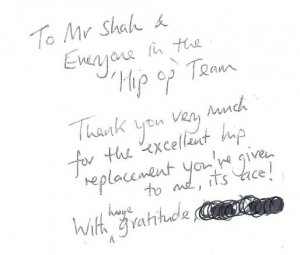 To Mr Shah &
Everyone in the
'Hip op' Team
Thank you very much
for the excellent hip
replacement you've given
to me, it's ace!
With huge gratitude,